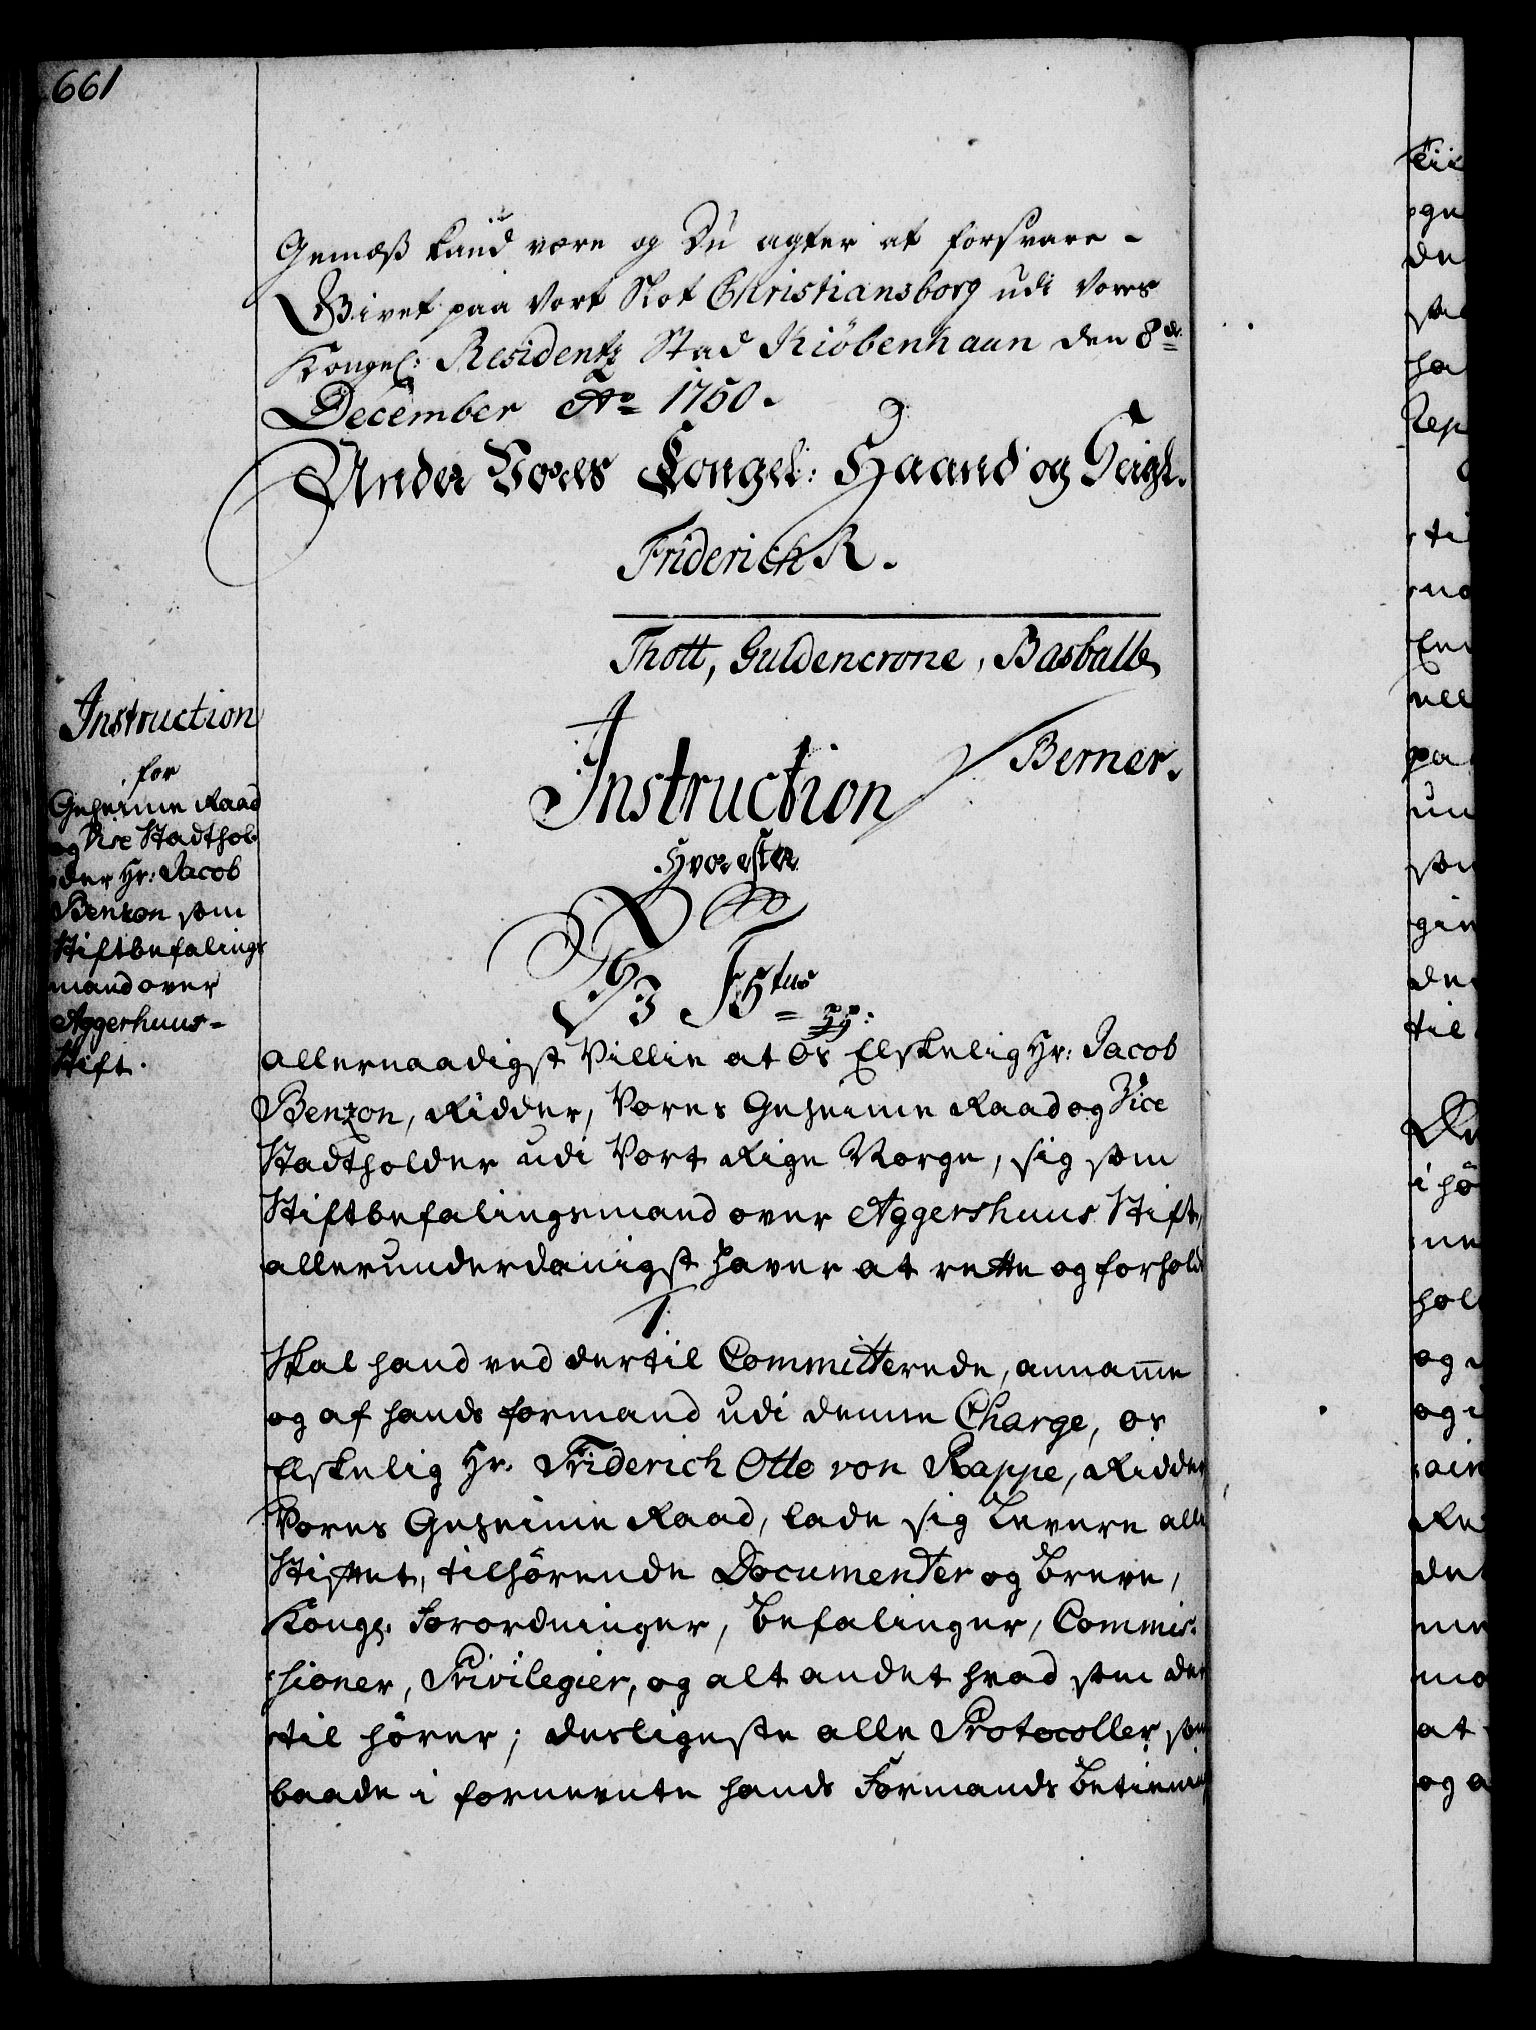 661
Gemæß kand være og Du agter at forsvare -
Givet paa Vort Slot Christiansborg udi Vores
Kongel: Residentz Stad Kiöbenhaun den 8de
December Ao 1750.
Under Vores Kongel: Haand og Seigl.
Friderich R.
Thott, Guldencrone, Basballe
Berner.
Instruction
for
Geheime Raad
og Vice Stadthol-
der Hr: Jacob
Benzon som
Stiftbefalings
mand over
Aggerhuus-
Stift.
Instruction
Hvorefter
Vi F 5tus
allernaadigst Villie at os Elskelig Hr: Jacob
Benzon, Ridder, Vores Geheime Raad og Vice
Stadtholder udi Vort Rige Norge, sig som
Stiftbefalingsmand over Aggershuus Stift,
allerunderdanigst haver at rette og forholde
1.
Skal hand ved dertil Committerede, annamme
og af hands formand udi denne Charge, os
Elskelig Hr. Friderich Otto von Rappe, Ridder
Vores Geheime Raad, lade sig levere alle
Stiftet, tilhörende Documenter og breve,
Kongl. Forordninger, befalinger, Commis-
sioner, Privilegier, og alt andet hvad som der
til hörer; desligeste alle Protocoller som
baade i fornevnte hands Formands betiening